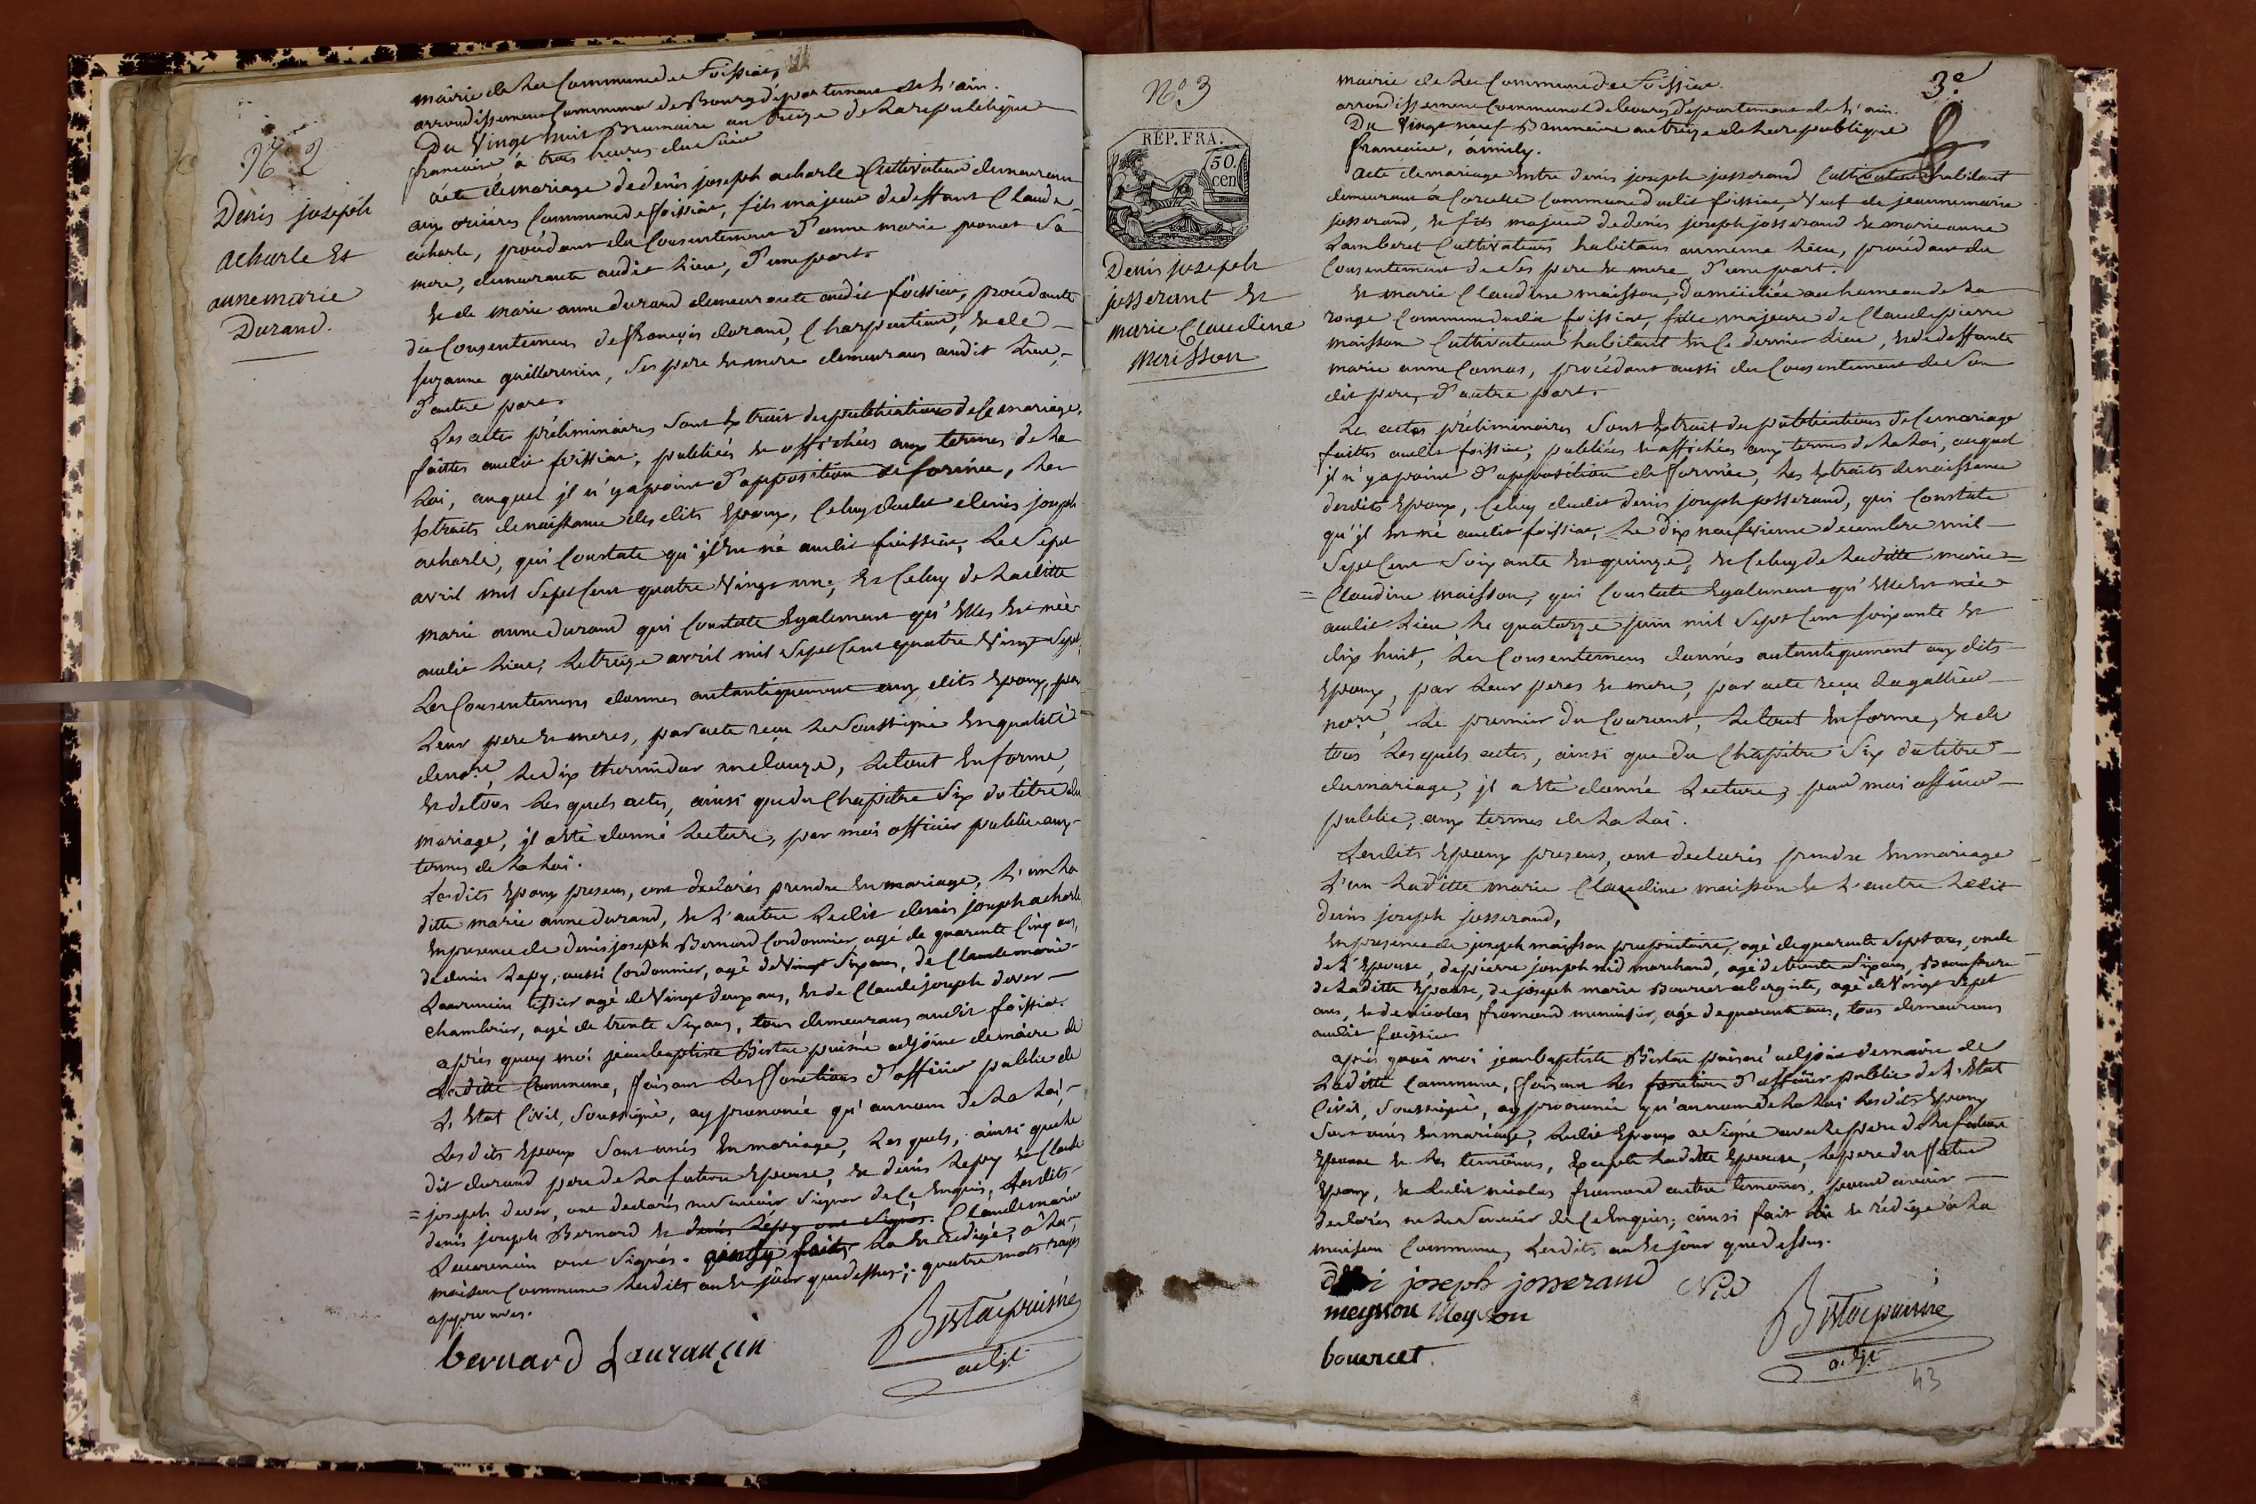 N.º 2
Denis joseph
acharle Et
anne marie
Durand.
mairie de La Commune de Foissiat,
arrondissement Communal de Bourg département de L'ain.
Du Vingt huit Brumaire an treize de La republique
francaise à trois heures du Soir
acte de mariage de denis joseph acharle Cultivateur demeurant
aux oriéres Commune de foissiat, fils majeur de deffunt Claude
acharle, procédant du Consentement d'anne marie Sa
mere, demeurante audit Lieu, d'une part.
Et de marie anne durand demeurante audit foissiat, procédante
du Consentement de françois durand, Charpentier, et de
suzanne guillermin, Ses pere et mere demeurans audit Lieu,
d'autre part.
Les actes préliminaires Sont Extrait des publications de Ce mariage,
faittes audit foissiat, publiées et affichées aux termes de La
Loi, auquel jl n'y a point d'opposition de formée, Les
Extraits de naissance des dits Epoux, Celuy dudit denis joseph
acharle, qui Constate qu'jl Est né audit foissiat, Le Sept
avril mil Sept Cent quatre Vingt un; Et Celuy de Laditte
marie anne durand qui Constate Egalement qu'Elle Est née
audit Lieu, Le treize avril mil Sept Cent quatre Vingt Sept,
Les Consentemens donnés autantiquement aux dits Epoux, par
Leur pere et meres, par acte reçu Le Soussigné En qualité
de no.re, Le dix thermidor an douze, Le tout En forme,
Et de tous Les quels actes, ainsi que du Chapitre Six du titre du
mariage, jl a été donné Lecture, par moi officier public aux
termes de La Loi.
Lesdits Epoux presens, ont declarés prendre En mariage, L'un La
ditte marie anne durand, Et L'autre Ledit denis joseph acharle
En presence de denis joseph Bernard Cordonnier, agé de quarante Cinq ans,
de denis Repy, aussi Cordonnier, agé de Vingt Six ans, de Claude marie
Laurencin tissier agé de Vingt deux ans, et de Claude joseph dever
Chambrier, agé de trente Six ans, tous demeurans audit foissiat.
après quoy moi jean baptiste Bistac puisné adjoint de maire de
Laditte Commune, faisant Les fonctions d'officier public de
L'Etat Civil, Soussigné, ay prononcé qu'au nom de La Loi,
Lesdits Epoux Sont unis En mariage, Les quels, ainsi que Le
dit durand pere de La future Epouse, et denis Repy et Claude
= joseph dever, ont declarés ne Savoir Signer de Ce Enquis, Lesdits
denis joseph Bernard et denis Repy ont Signés. Claude marie
Laurencin ont Signés. ainsy fait, Lu et redigé, à La
maison Commune Lesdits an et jour que dessus; quatre mots rayés
approuvés.
bernard Laurançin
Bistac puisné
adjt
3.e
N.º 3
RÉP. FRA.
50.
cen
Denis joseph
josserant et
marie Claudine
Maisson
mairie de La Commune de Foissiat.
arrondissement Communal de bourg département de L'ain.
Du Vingt neuf Brumaire an treize de La republique
francaise, à midy.
acte de mariage Entre denis joseph josserand Cultivateur habitant
demeurant à Corcelle Commune dudit foissiat, Veuf de jeanne marie
josserand, et fils majeur de denis joseph josserand et marie anne
Lamberet Cultivateurs habitans au même Lieu, procédant du
Consentement de Ses pere et mere, d'une part.
Et marie Claudine maisson, domiciliée au hameau de La
ronge Commune dudit foissiat, fille majeure de Claude pierre
maisson Cultivateur habitant En Ce dernier Lieu, et de deffunte
marie anne Camus, procédant aussi du Consentement de Son
dit pere, d'autre part.
Les actes préliminaires Sont Extrait des publications de Ce mariage
faittes audit foissiat, publiées et affichées aux termes de La Loi, auquel
jl n'y a point d'opposition de formée, Les Extraits de naissance
desdits Epoux, Celuy dudit denis joseph josserand, qui Constate
qu'jl Est né audit foissiat, Le dix neufvieme decembre mil
Sept Cent Soixante Et quinze, Et Celuy de Laditte marie =
= Claudine maisson, qui Constate Egalement qu'Elle Est née
audit Lieu, Le quatorze juin mil Sept Cent soixante Et
dix huit, Les Consentemens donnés autantiquement aux dits
Epoux, par Leur peres et mere, par acte reçu
no.re, Le premier du Courant, Le tout En forme, Et de
tous Les quels actes, ainsi que du Chapitre Six du titre
du mariage, jl a été donné Lecture, par moi officier
public, aux termes de La Loi.
Lesdits Epoux presens, ont declarés prendre En mariage
L'un Laditte marie Claudine maisson Et L'autre Ledit
denis joseph josserand,
En presence de joseph maisson proprietaire, agé de quarante Sept ans, oncle
de L'Epouse, de pierre joseph nid marchand, agé de trente Six ans, Beaufrere
de Laditte Epouse, de joseph marie Bourcet aubergiste, agé de Vingt Sept
ans, et de nicolas fromond menuisier, agé de quarante ans, tous demeurans
audit foissiat
après quoi moi jean baptiste Bistac puisné adjoint de maire de
Laditte Commune, faisant Les fonctions d'officier public de L'Etat
Civil, Soussigné, ay prononcé qu'au nom de La Loi Lesdits Epoux
Sont unis En mariage, Ledit Epoux a Signé avec Le pere de La future
Epouse et Les temoins, Excepté Laditte Epouse, Le pere du futur
Epoux, et Ledit nicolas fromond autre temoins, pour avoir
declarés ne Le Savoir de Ce Enquis; ainsi fait Lu et rédigé à La
maison Commune, Lesdits an et jour que dessus.
joseph josserand Nid
meysson Meysson
bourcet
Bistac puisné
adjt
43